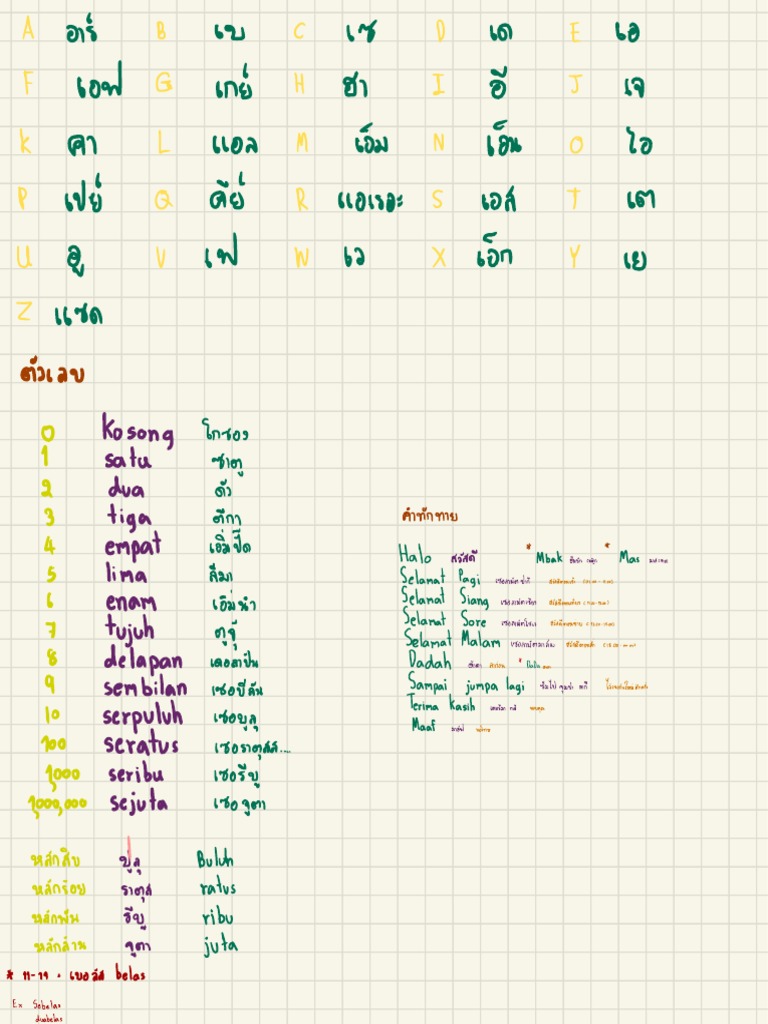 A อาร์ B เบ C เซ D เด E เอ
F เอฟ G เกย์ H ฮา I อี J เจ
K คา L แอล M เอ็ม N เอ็น O โอ
P เปย์ Q คีย์ R แอเรอะ S เอส T เต
U อู V เฟ W เว X เอ็ก Y เย
Z แซด
ตัวเลข
0 kosong โกซอง
1 satu ซาตู
2 dua ดัว
3 tiga ตีกา
4 empat เอิ่มปัด
5 lima ลีมา
6 enam เอิ่มนำ
7 tujuh ตูจู้
8 delapan เดอลาปัน
9 sembilan เซอบีลัน
10 serpuluh เซอบูลู
100 seratus เซอราตุสส....
1,000 seribu เซอรีบู
1,000,000 sejuta เซอจูตา
หลักสิบ ปูลู Buluh
หลักร้อย ราตุส ratus
หลักพัน รีบู ribu
หลักล้าน จูตา juta
* 11-19 • เบอลัส belas
Ex Sebelas
duabelas
คำทักทาย
Halo สวัสดี * Mbak * Mas
Selamat Pagi
Selamat Siang
Selamat Sore
Selamat Malam
Dadah * DaDa
Sampai jumpa lagi
Terima kasih ขอบคุณ
Maaf ขอโทษ